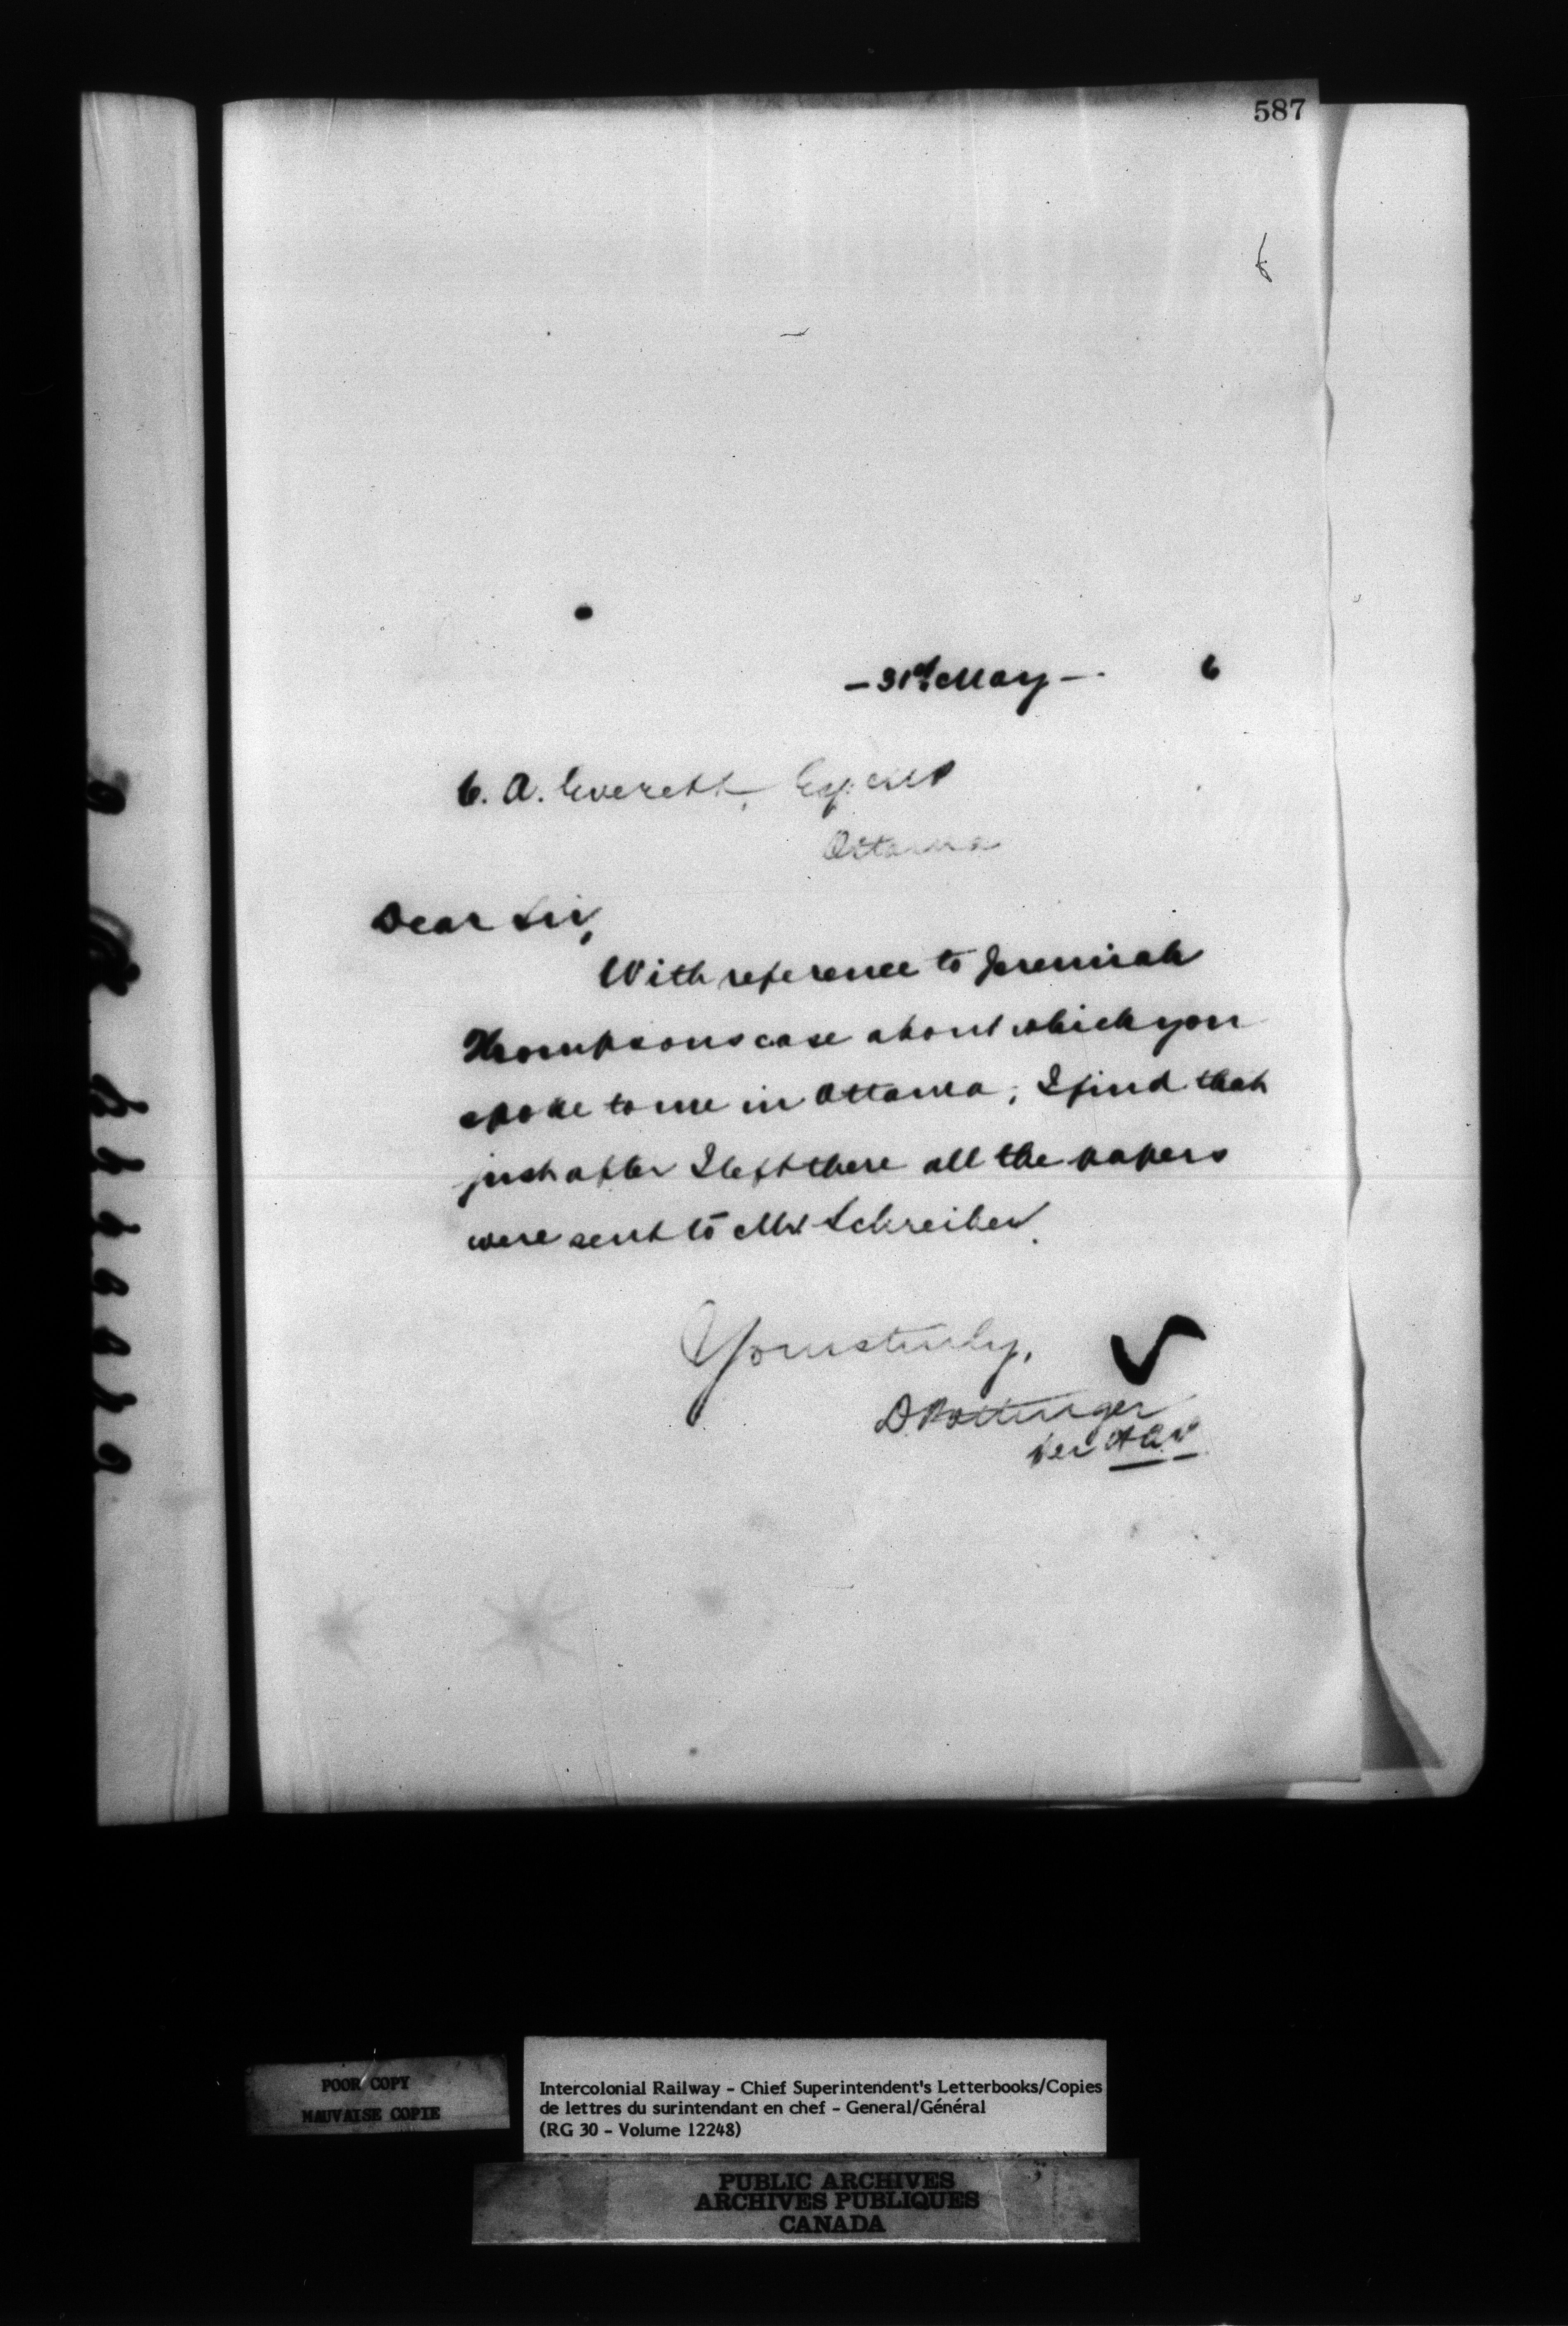 587
- 31st May - 6
C. A. Everett, Esq. M.P
Ottawa
Dear Sir,
With reference to Jeremiah
Thompsons case about which you
spoke to me in Ottawa; I find that
just after I left there all the papers
were sent to Mr Schreiber.
Yours truly,
D. Pottinger
Per
POOR COPY
MAUVAISE COPIE
Intercolonial Railway - Chief Superintendent's Letterbooks/Copies
de lettres du surintendant en chef - General/Général
(RG 30 - Volume 12248)
PUBLIC ARCHIVES
ARCHIVES PUBLIQUES
CANADA